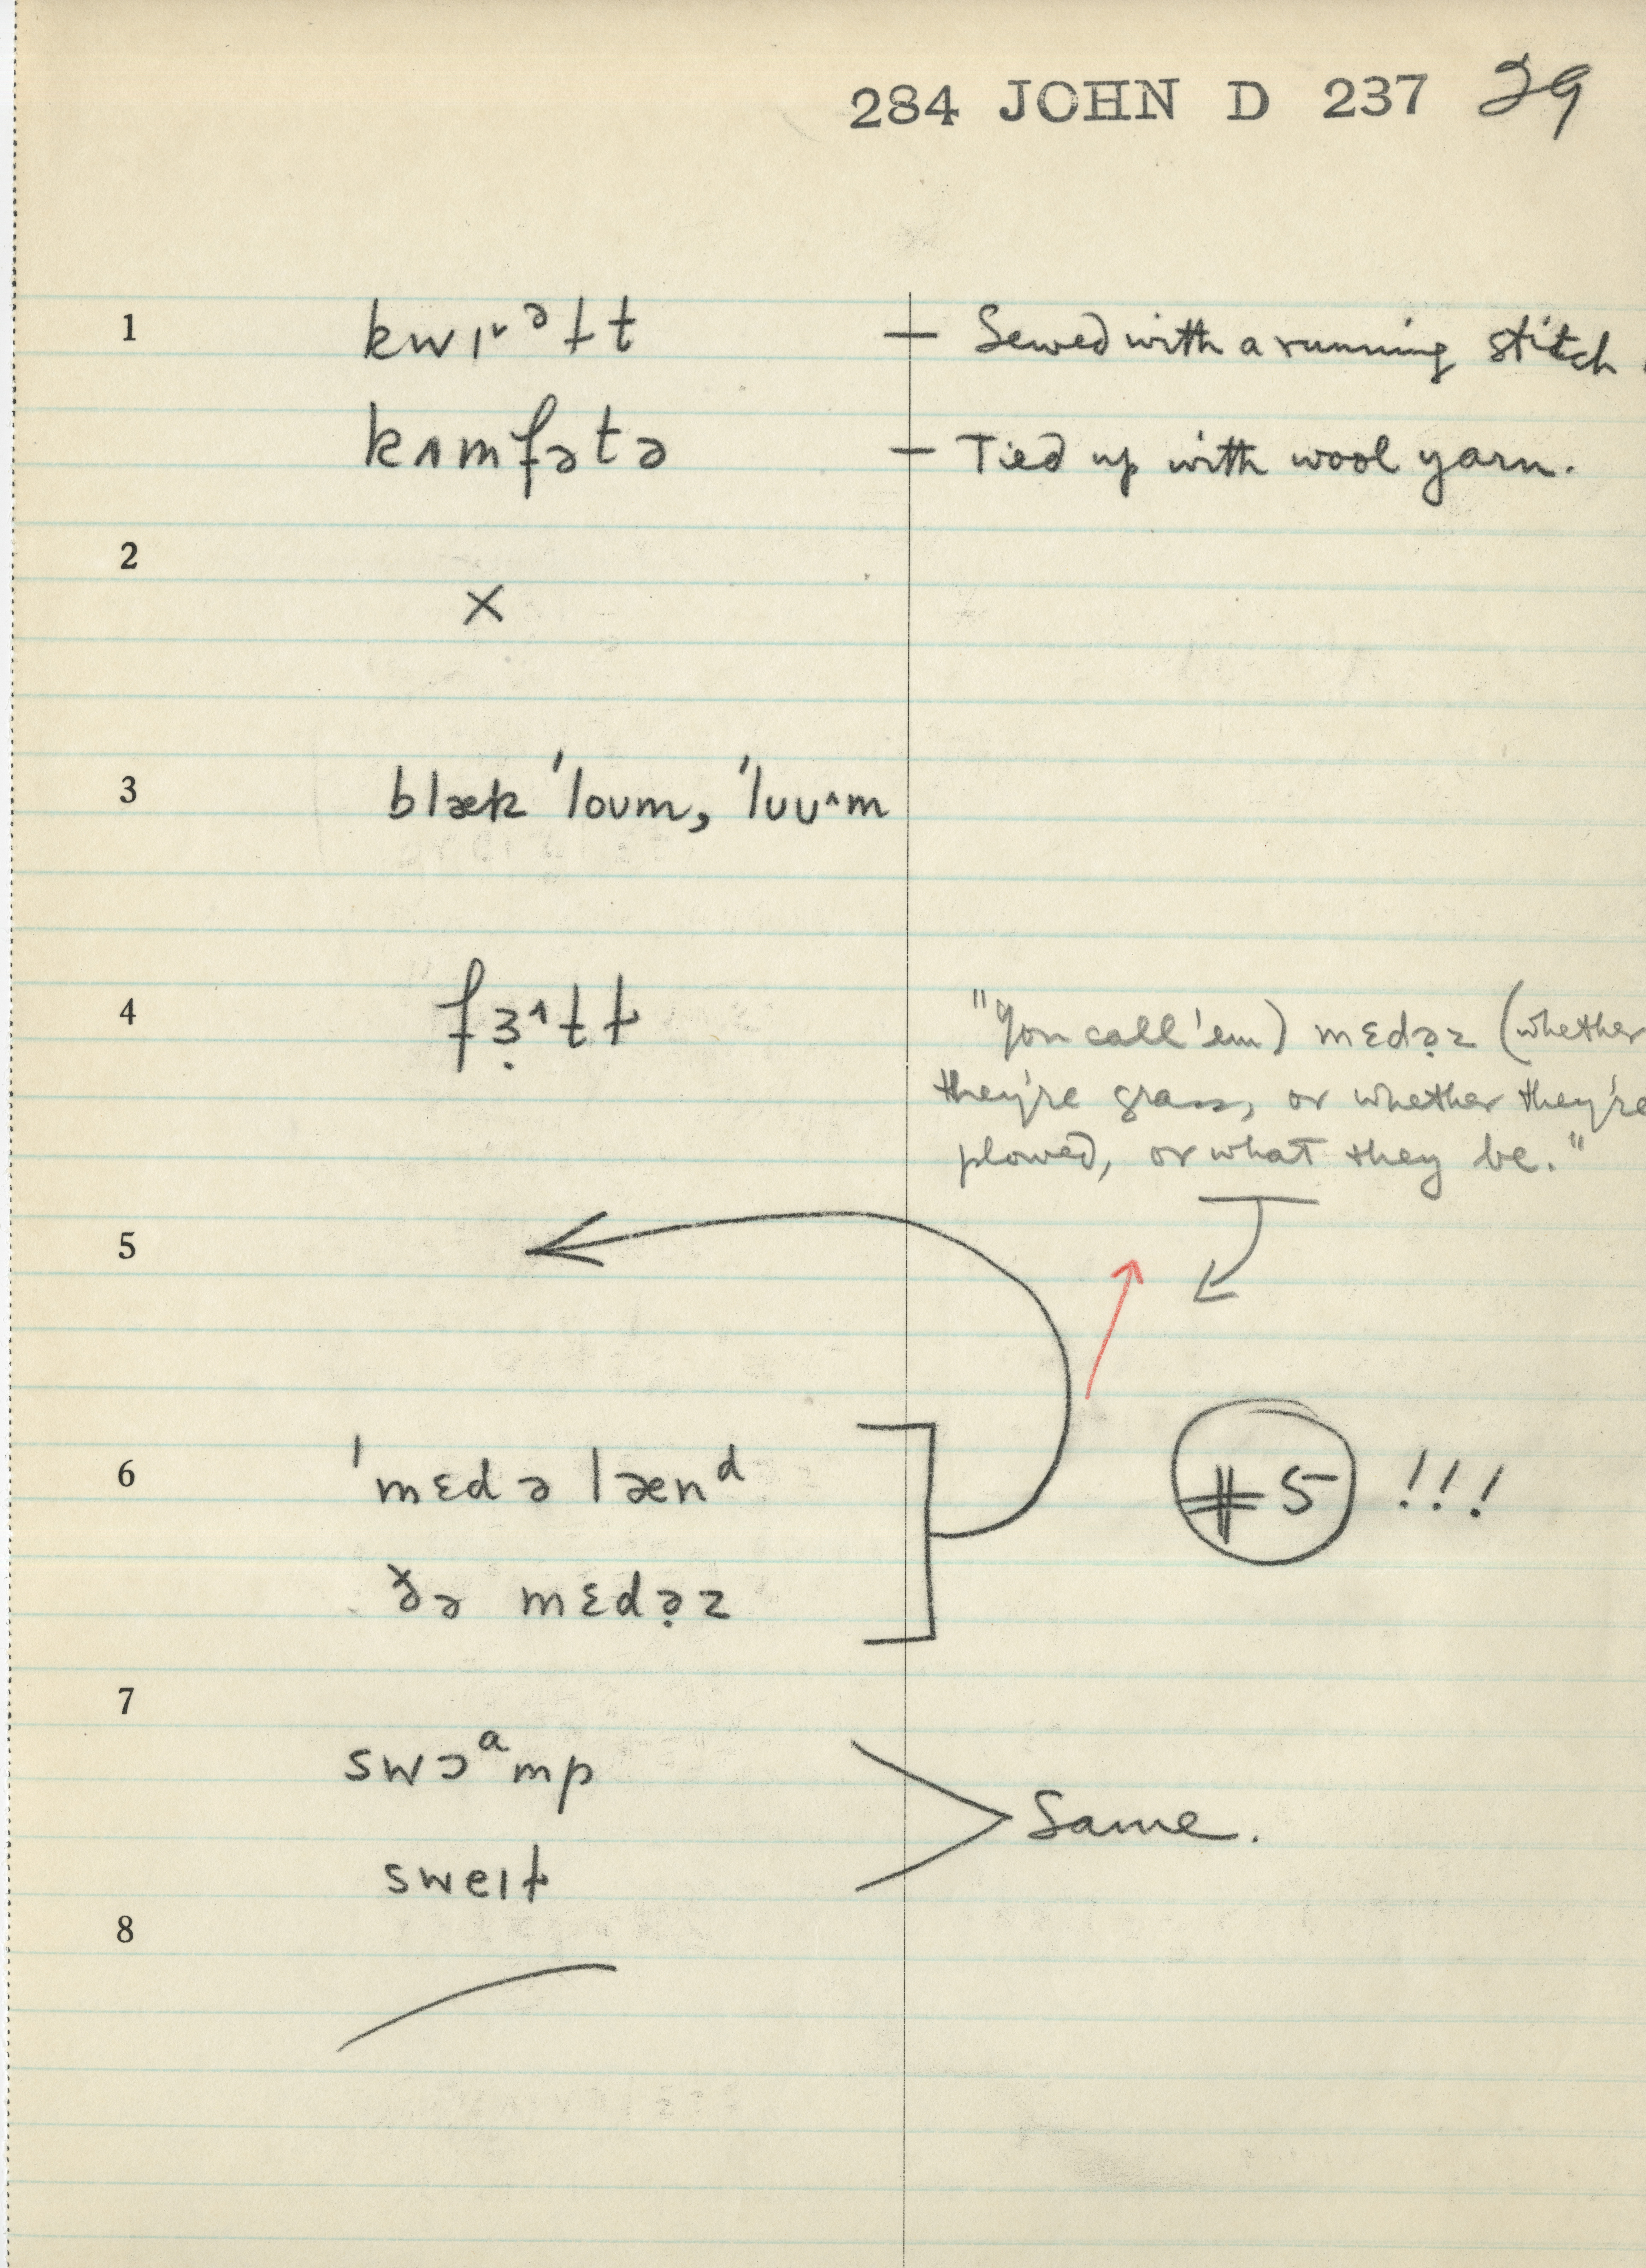 284 JOHN D 237 29
1 kwɪ˅ᵊɫt — Sewed with a running stitch.
kʌmfətə — Tied up with wool yarn.
2
×
3 blæk 'loʊm, 'luʊ^m
4 fɜ̣^tɫ "You call 'em) mɛdə̣z (whether
they're grass, or whether they're
plowed, or what they be."
5
6 'mɛdə lænᵈ #5 !!!
ðə mɛdə̣z
7
swɔᵃmp
Same.
sweɪɫ
8